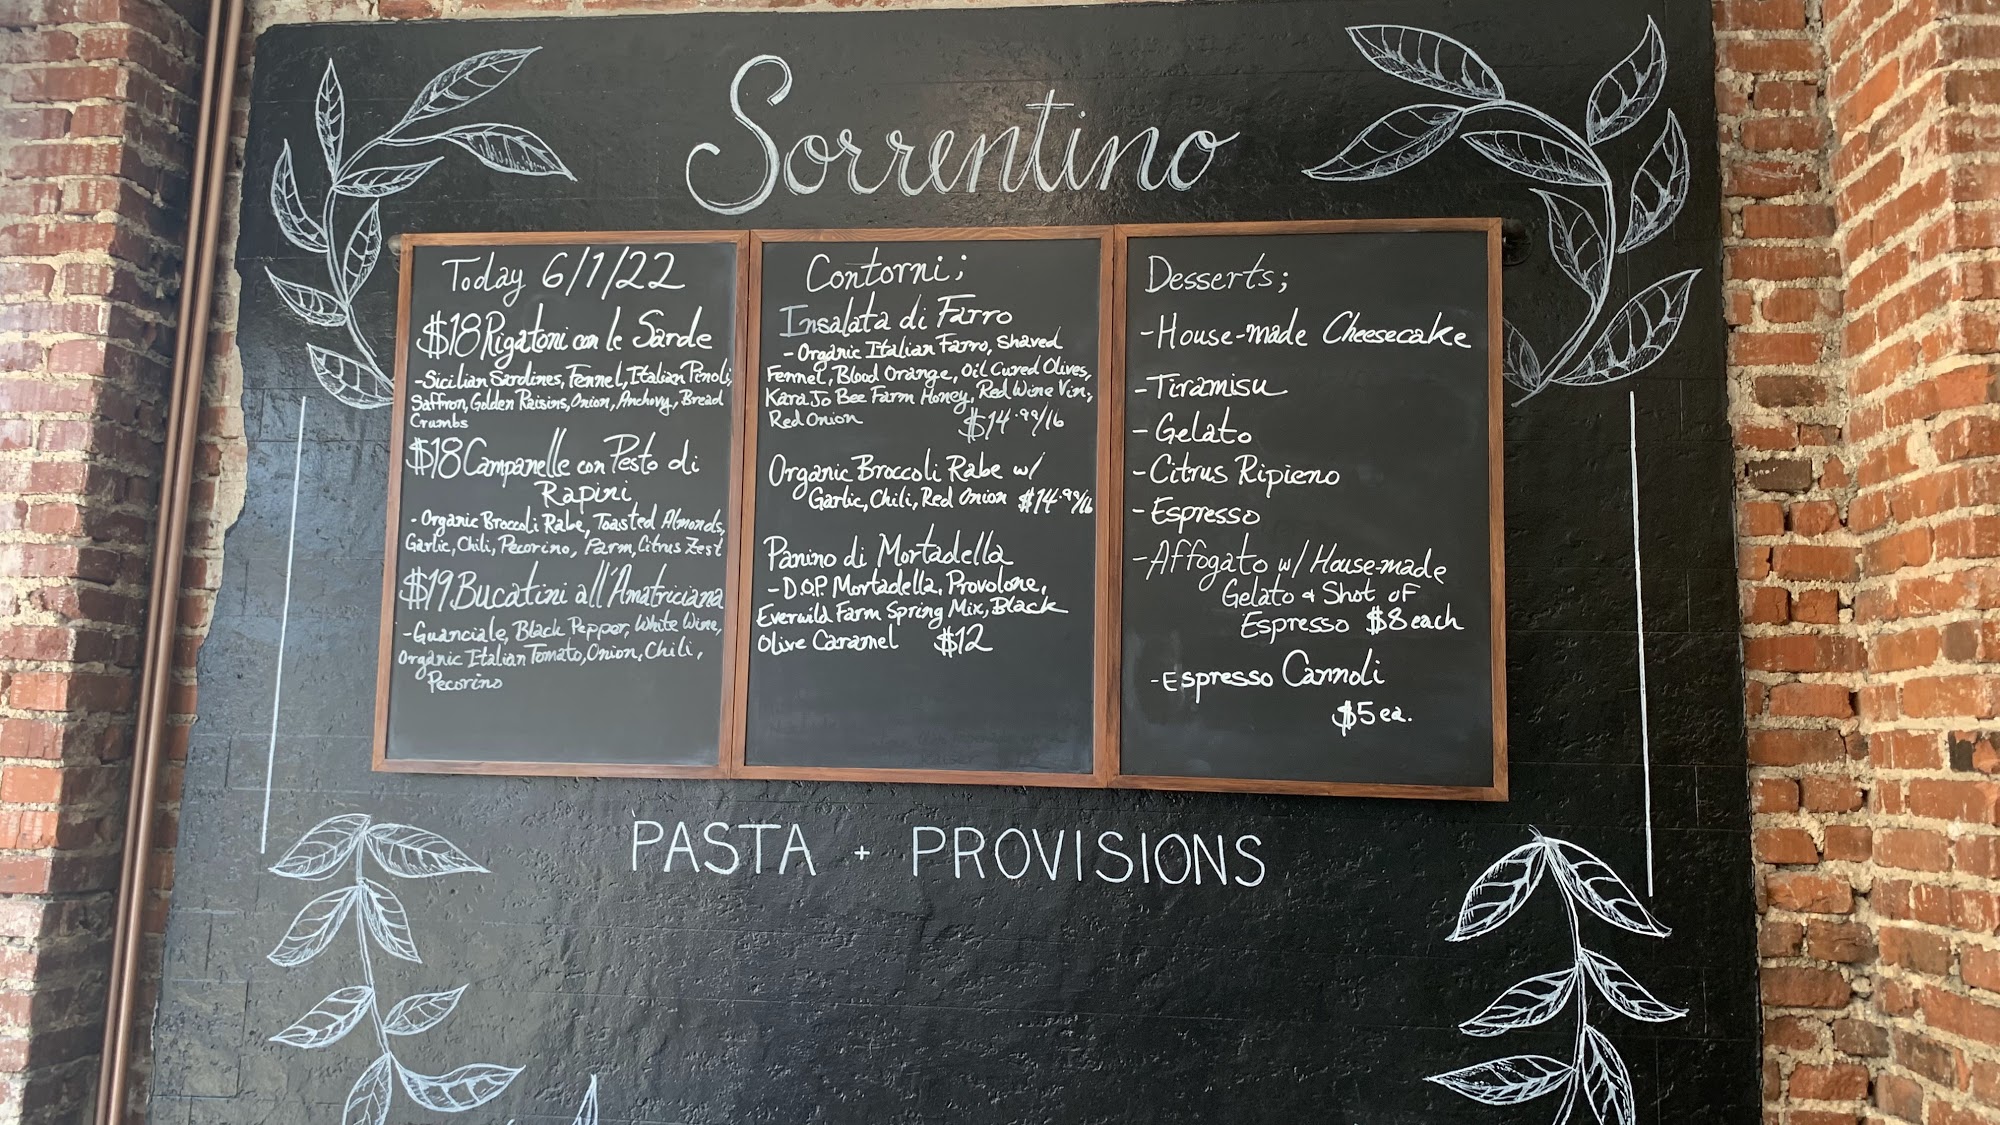 Sorrentino
Today 6/1/22
$18 Rigatoni con le Sarde
-Sicilian Sardines, Fennel, Italian Pinoli,
Saffron, Golden Raisins, Onion, Anchovy, Bread
Crumbs
$18 Campanelle con Pesto di
Rapini
- Organic Broccoli Rabe, Toasted Almonds,
Garlic, Chili, Pecorino, Parm, Citrus Zest
$19 Bucatini all'Amatriciana
-Guanciale, Black Pepper, White Wine,
Organic Italian Tomato, Onion, Chili,
Pecorino
Contorni;
Insalata di Farro
- Organic Italian Farro, Shaved
Fennel, Blood Orange, Oil Cured Olives,
Kara Jo Bee Farm Honey, Red Wine Vin,
Red Onion $14.99/lb
Organic Broccoli Rabe w/
Garlic, Chili, Red Onion $14.99/lb
Panino di Mortadella
- D.O.P. Mortadella, Provolone,
Everwild Farm Spring Mix, Black
Olive Caramel $12
Desserts;
-House-made Cheesecake
-Tiramisu
- Gelato
-Citrus Ripieno
-Espresso
-Affogato w/ House-made
Gelato & Shot of
Espresso $8 each
-Espresso Cannoli
$5 ea.
PASTA + PROVISIONS